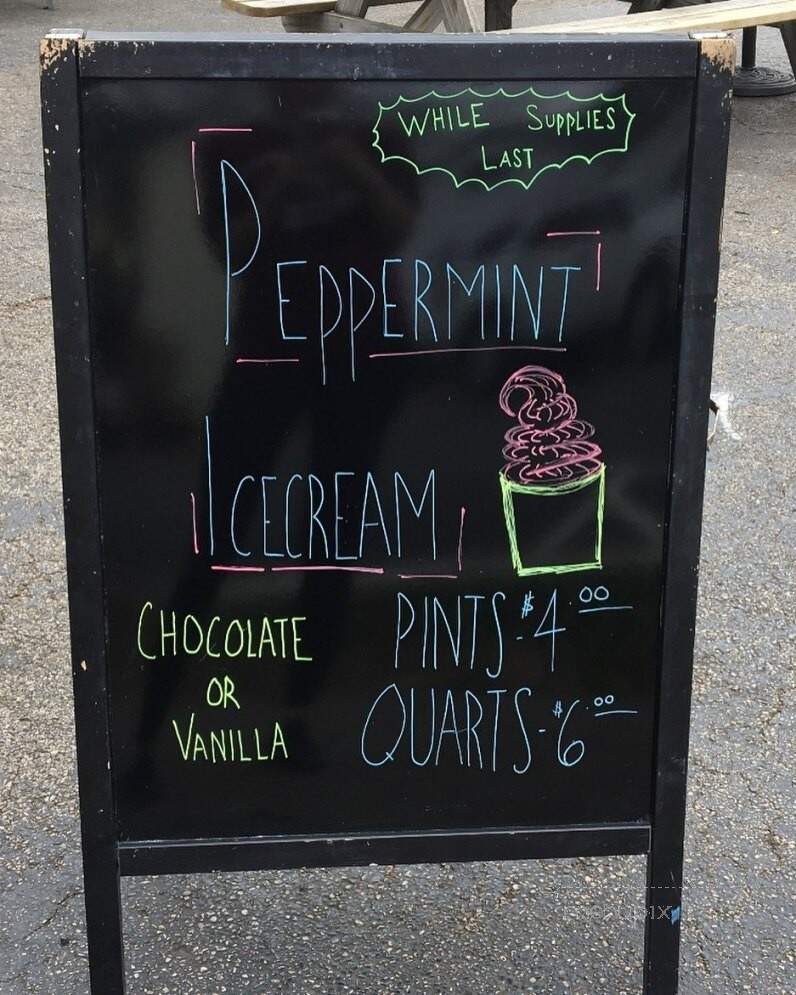 WHILE SUPPLIES
LAST
PEPPERMINT
ICECREAM
CHOCOLATE
OR
VANILLA
PINTS-$4.00
QUARTS-$6.00